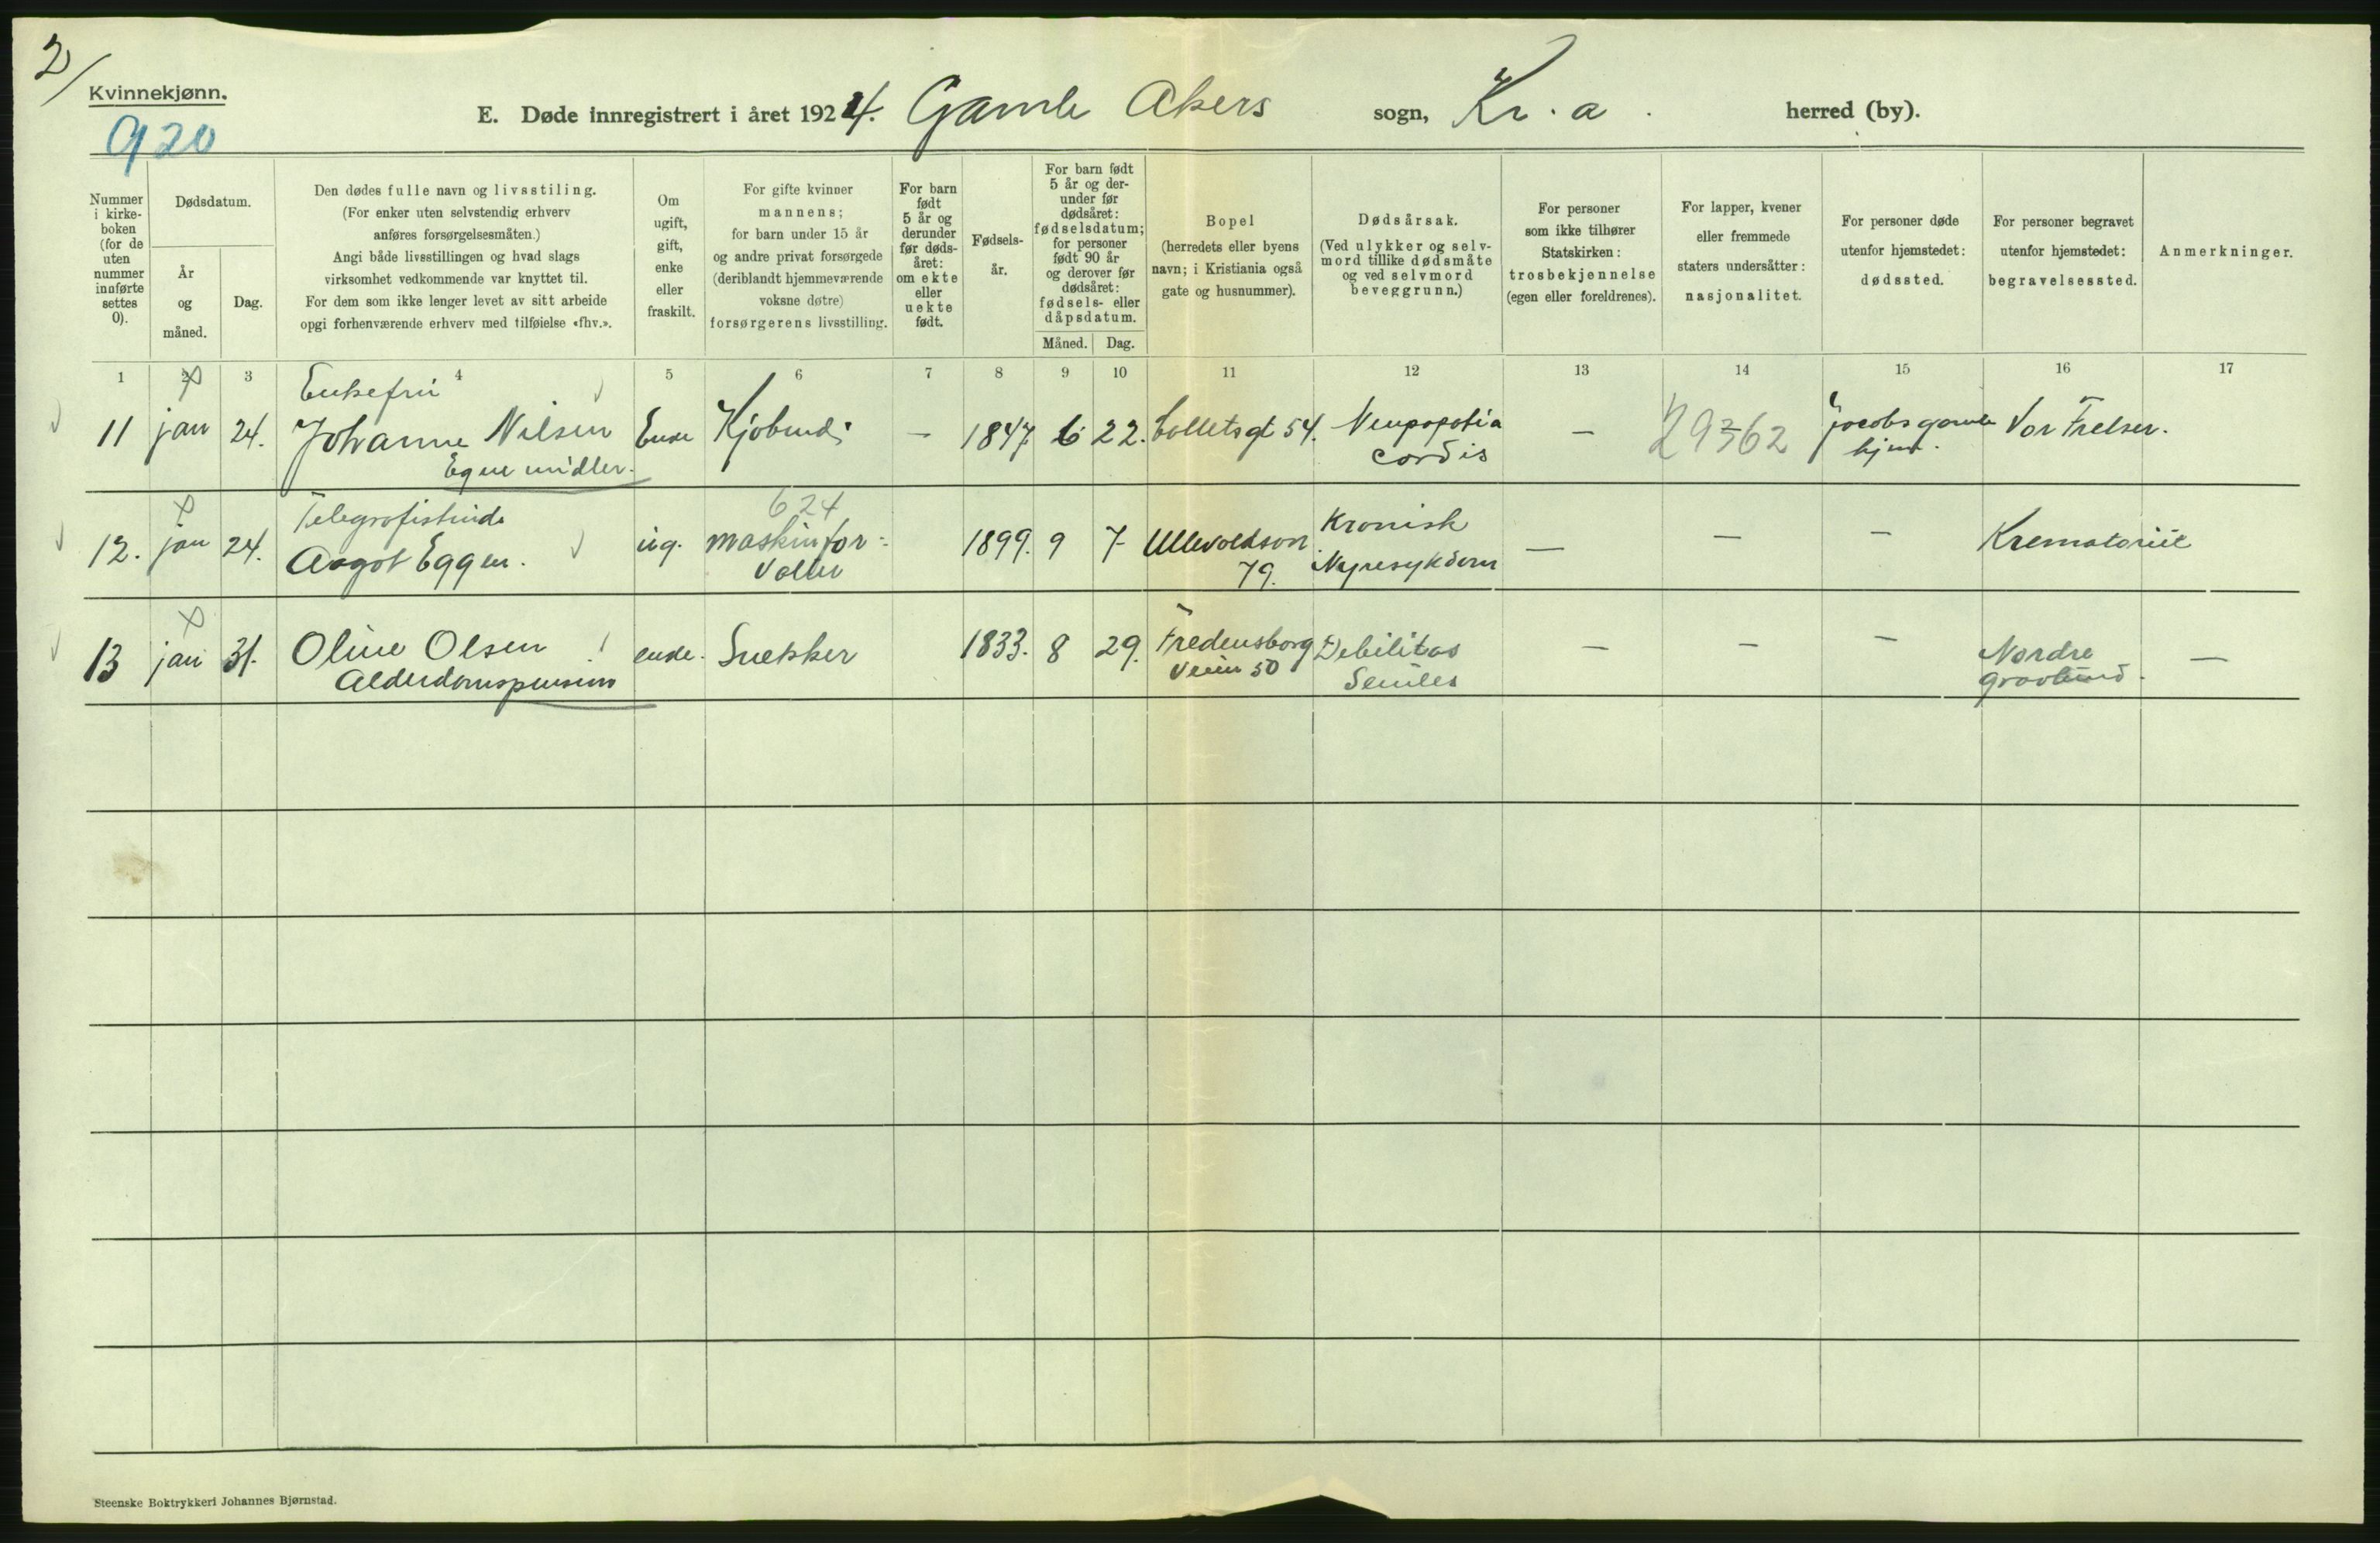 2/
Kvinnekjønn.
920
E. Døde innregistrert i året 1924. Gamle Akers sogn, Kr.a. herred (by).
Nummer i kirke-boken (for de uten nummer innførte settes 0).
Dødsdatum.
År og måned.
Dag.
Den dødes fulle navn og livsstiling.
(For enker uten selvstendig erhverv
anføres forsørgelsesmåten.)
Angi både livsstillingen og hvad slags
virksomhet vedkommende var knyttet til.
For dem som ikke lenger levet av sitt arbeide
opgi forhenværende erhverv med tilføielse «fhv.».
Om ugift, gift, enke eller fraskilt.
For gifte kvinner
mannens;
for barn under 15 år
og andre privat forsørgede
(deriblandt hjemmeværende
voksne døtre)
forsørgerens livsstilling.
For barn født 5 år og derunder før døds-året: om ekte eller uekte født.
Fødsels-år.
For barn født 5 år og der-under før dødsåret: fødselsdatum; for personer født 90 år og derover før dødsåret: fødsels- eller dåpsdatum.
Måned.
Dag.
Bopel
(herredets eller byens
navn; i Kristiania også
gate og husnummer).
Dødsårsak.
(Ved ulykker og selv-
mord tillike dødsmåte
og ved selvmord
beveggrunn.)
For personer
som ikke tilhører
Statskirken:
trosbekjennelse
(egen eller foreldrenes).
For lapper, kvener
eller fremmede
staters undersåtter:
nasjonalitet.
For personer døde
utenfor hjemstedet:
dødssted.
For personer begravet
utenfor hjemstedet:
begravelsessted.
Anmerkninger.
1 2 3 4 5 6 7 8 9 10 11 12 13 14 15 16 17
Enkefru
11 jan 24. Johanne Nilsen Enke — 1847 6 22. Colletsgt 54. cordis — 29362 Jacobs gamle hjem. Vor Frelser.
Egne midler.
624
Telegrafistinde
12. jan 24. Aagot Eggen. ug. maskinfor- 1899. 9 7 Ullevoldsvn 79. Kronisk Nyresykdom — — — Krematoriet
valter
13 jan 31. Oline Olsen enke. Snekker 1833. 8 29. Fredensborg Veien 50 Debilitas Seniles — — — Nordre gravlund. —
Alderdomspension
Steenske Boktrykkeri Johannes Bjørnstad.